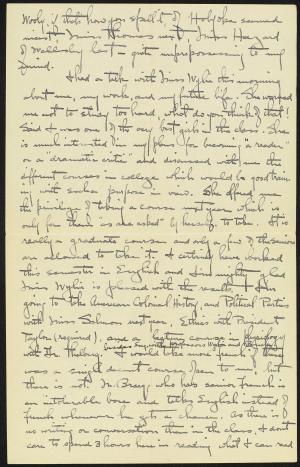 Wooly, if that's how you spell it, of Holyoke seemed
nicest, Miss Thomas next, Miss Hazard
of Wellesley last – quite unprepossessing to my
mind.
I had a talk with Miss Wylie this morning
about me, my work, and my future life. She warned
me not to study too hard, what do you think of that!
Said I was one of the very best girls in the class. She
is much interested in my plan for becoming "a reader"
or a dramatic critic" and discussed with me the
different courses in college which would be good train
ing with such a purpose in view. She offered me
the privilege of taking a course next year which is
only for them "as are asked" by herself to take. It is
really a graduate course, and only a few of the seniors
are allowed to take it. I certainly have worked
this semester in English and I'm mighty glad
Miss Wylie is pleased with the results. I am
going to take American Colonial History, and Political Parties
with Miss Salmon next year. Ethics with President
Taylor (required), and a course in
with
was a single decent course open to me, but
there is not. Mr. Bracq, who has senior french is
an intolerable bore and talks English instead of
french whenever he gets a chance. As there is
no writing or conversation then in the class, I don't
care to spend 3 hours here in reading what I can read